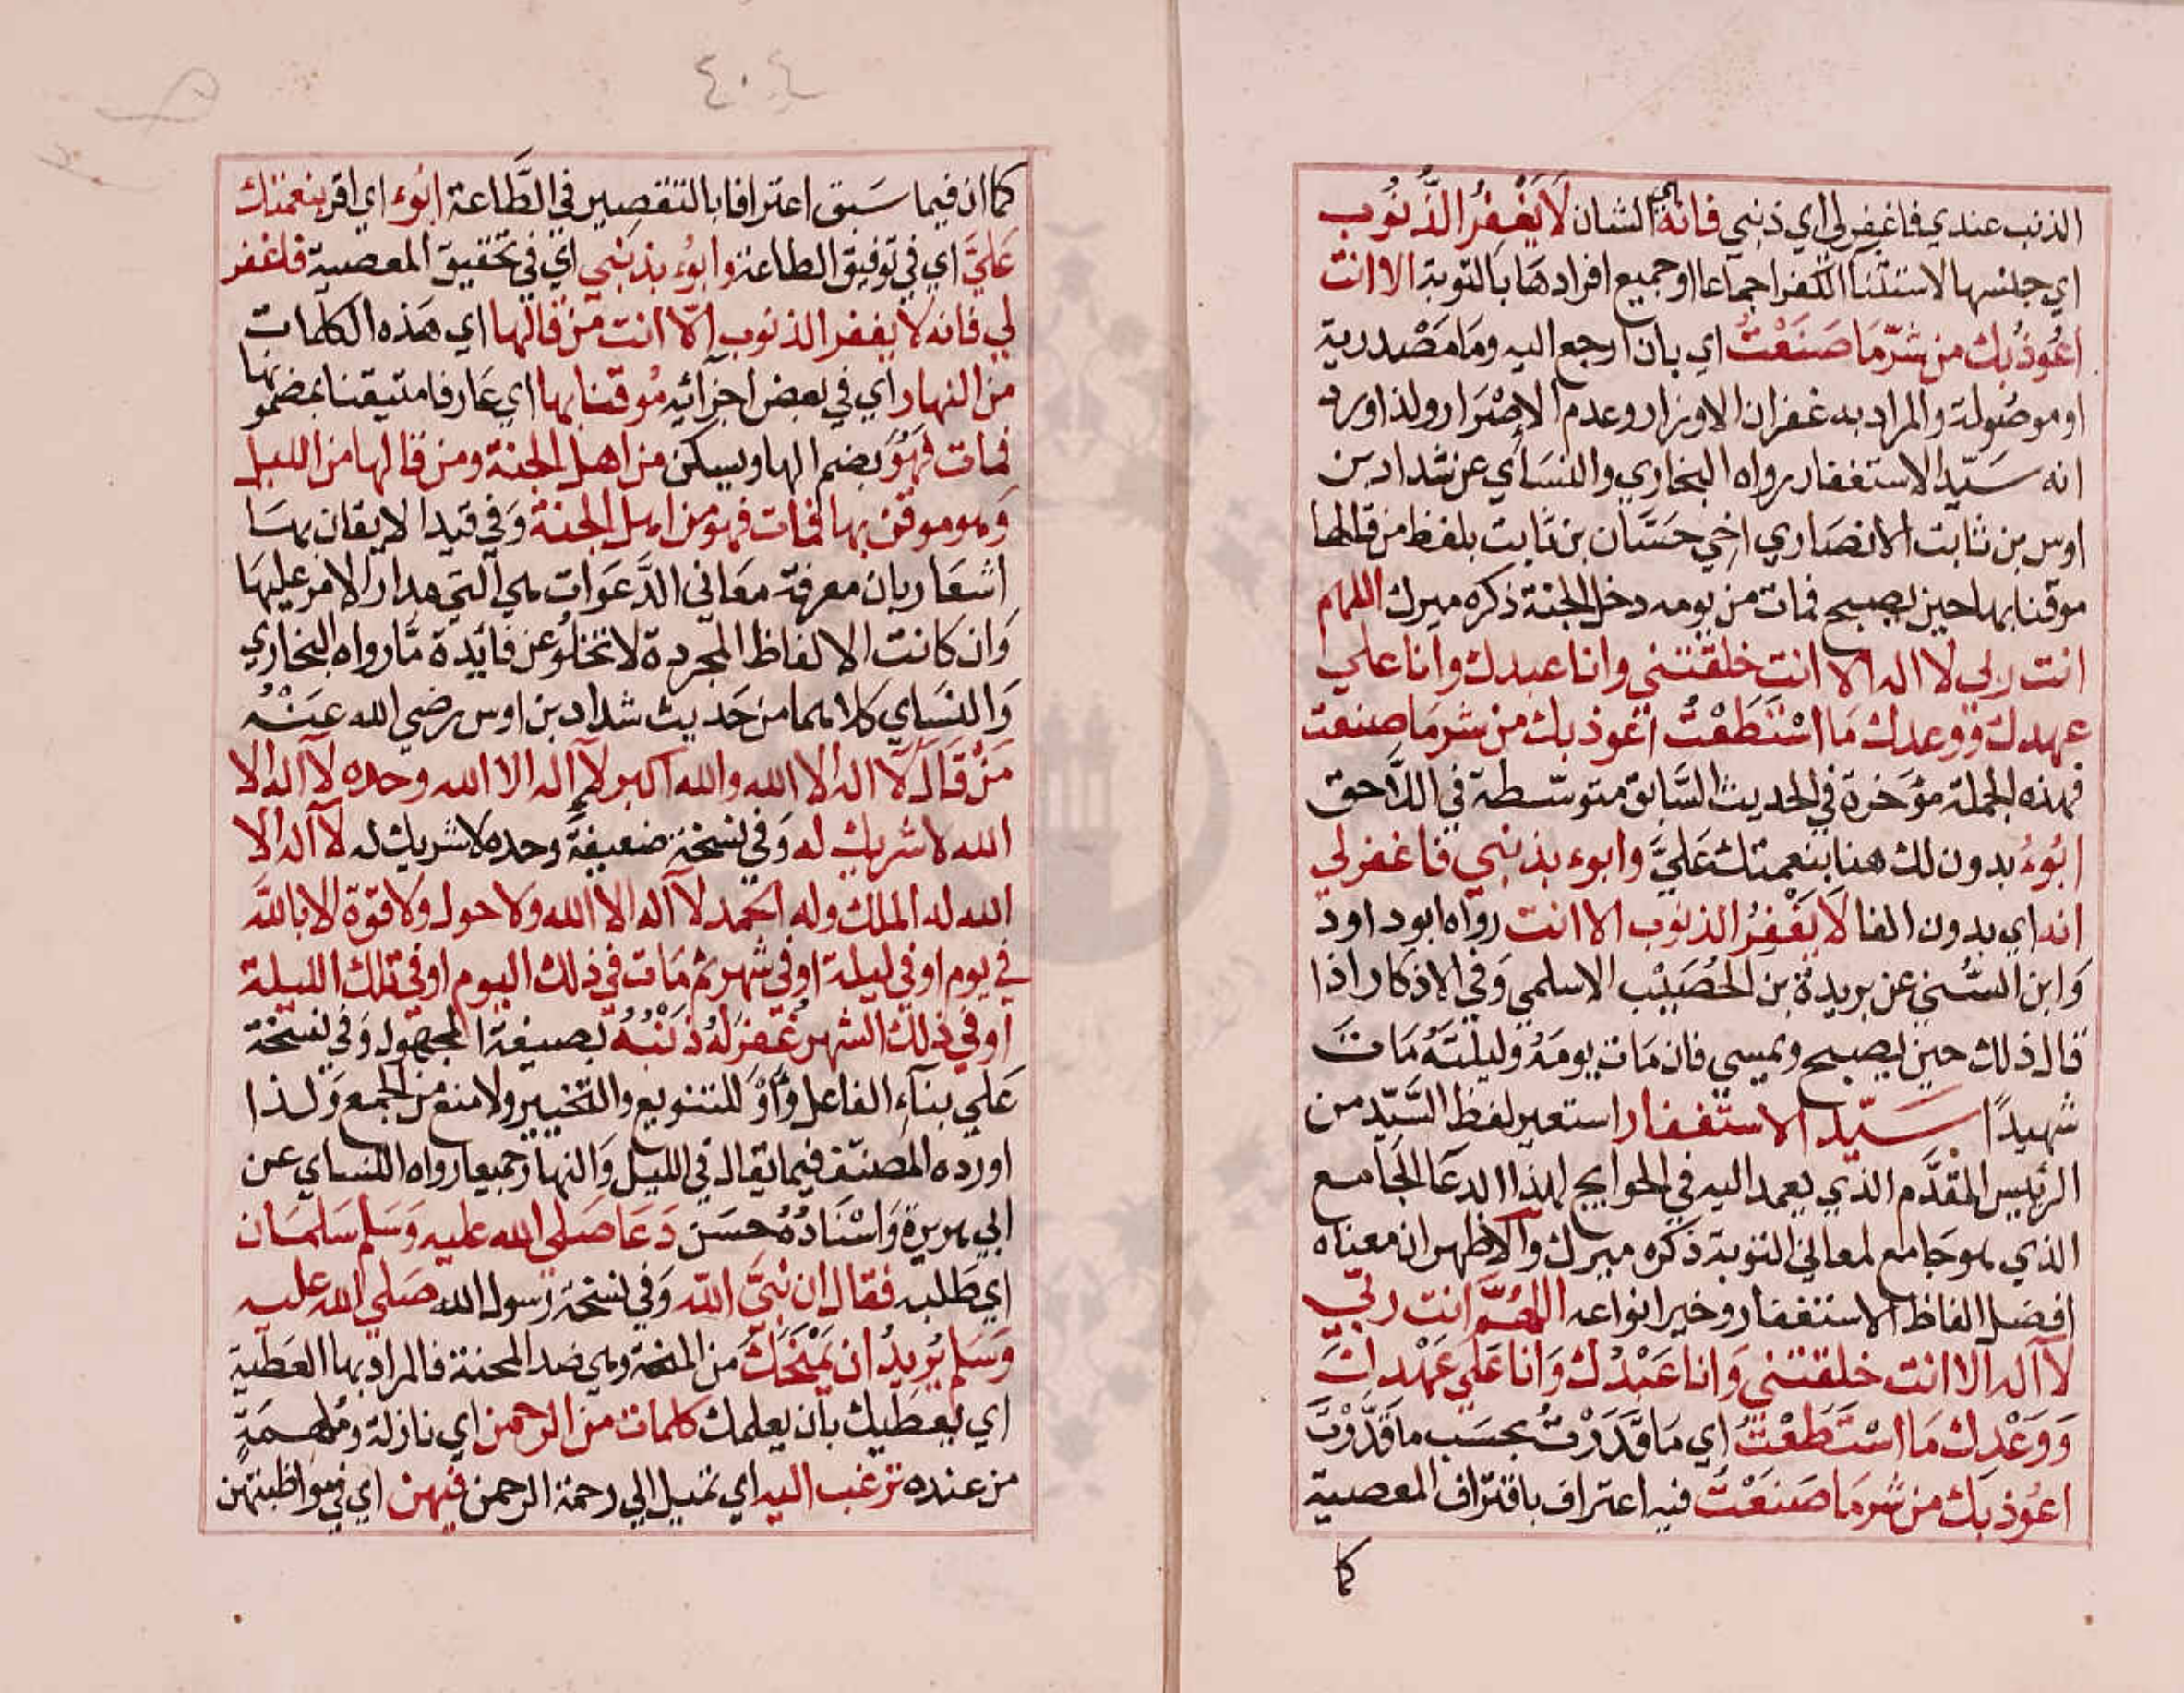 الذنب عندي فاغفر لي اي ذنبي فانه اي الشان لا يَغْفِرُ الذُّنُوب
اي جنسها لاستثنآ الكفر اجماعا او جميع افرادهَا بالتوبة الا انت
اعُوذُ بك من شرّ مَا صَنَعْتُ اي بان ارجع اليه ومَا مَصْدرية
او موصُولة والمراد به غفران الاوزار وعدم الاِصْرَار ولذا ورد
انه سَيّد الاستغفار رواه البخاري والنسَاي عن شداد بن
اوس بن ثابت الانصَاري اخي حَسَّان بن ثابت بلفظ من قالها
موقنا بها حين يصبح فمات من يومه دخل الجنة ذكره ميرك اللهم
انت ربي لا اله الا انت خلقتني وانا عبدك وانا علي
عهدك ووعدك مَا اسْتَطَعْتُ اعوذ بك من شر مَا صنعت
فهذه الجملة مؤخرة في الحديث السَّابق متوسّطة في اللَّاحق
ابُوءُ بدون لك هنا بنعمتك عَليَّ وابوء بذنبي فاغفر لي
انه اي بدون الفا لا يَغْفِرُ الذنوب الا انت رواه ابو داود
وَابن السُّني عن بريدة بن الحُصَيْب الاسلمي وَفي الاذكار اذا
قال ذلك حين يصبح ويمسي فان مَات يومَهُ وليلتَهُ مَات
شهيدًا سَيّد الاستغفار استعير لفظ السَّيّد من
الرئيس المقدَّم الذي يعمد اليه في الحوايج لهذا الدعَا الجَامع
الذي هو جَامع لمعاني التوبة ذكره ميرك والاظهر ان معناه
افضل الفاظ الاستغفار وخير انواعه اللهُمَّ انت ربّي
لآ اله الا انت خلقتني وَانا عَبْدُك وَانا عَلي عَهْدك
وَوَعْدك مَا اسْتَطَعْتُ اي مَا قَدَرْتُ بحسَب ما قَدَّرْتَ
اعُوذ بَك من شر مَا صَنَعْتُ فيه اعتراف باقتراف المعصية
كما
٤٠٤
كما ان فيما سَبق اعترافا بالتقصير في الطَّاعة ابُوء اي اقر بنعمتك
عَليَّ اي في توفيق الطاعة وابوُء بذنبي اي في تحقيق المعصية فاغفر
لي فانه لا يغفر الذنوب الّا انت مَن قالها اي هذه الكلمات
من النهار اي في بعض اجزائه مُوقنا بها اي عَارفا متيقنا بمضمونها
فمات فهُوَ بضم الها ويسكن من اهل الجنة ومن قالها من الليل
وَهو موقن بها فمات فهو من اهل الجنة وَفي قيد الايقان بهَا
اشعَار بان معرفة معَاني الدَّعَوَات هي التي مدار الامر عليهَا
وَان كانت الالفاظ المجردة لا تخلُو عن فايدة مّا رواه البخاري
وَالنسَاي كلاهما من حَديث شداد بن اوس رضي الله عَنْهُ
مَنْ قَال لَا اله الا الله والله اكبر لآ اله الا الله وحده لآ اله الا
الله لا شريك له وَفي نسخة ضعيفة وحده لا شريك له لآ اله الا
الله له الملك وله الحمد لآ اله الا الله ولا حول ولا قوة الا بالله
في يوم او في ليلة او في شهر ثم مَات في ذلك اليوم او في تلك الليلة
او في ذلك الشهر غُفِرَ لهُ ذَنْبُهُ بصيغة المجهول وَفي نسخة
عَلي بنآء الفاعل وَأَوْ للتنويع والتخيير ولا منع من الجمع وَلذا
اورده المصنّف فيما يقال في الليل وَالنهار جميعا رواه النسَاي عن
ابي هريرة وَاسْنَادُهُ حسَن دَعَا صَلي الله عليه وَسَلم سَلمَان
اي طَلبه فقال ان نبيَّ اللّه وَفي نسخة رسول الله صَلي الله عليه
وَسَلم يُريدُ ان يَمْنَحَكَ من المنحة وهي ضد المحنة فالمراد بها العَطية
اي يعطيك بان يعلمك كلمات من الرحمن اي نازلة ومُلهمَةٍ
من عنده ترغب اليه اي تميل الي رحمة الرحمن فيهن اي في مواظبتهن